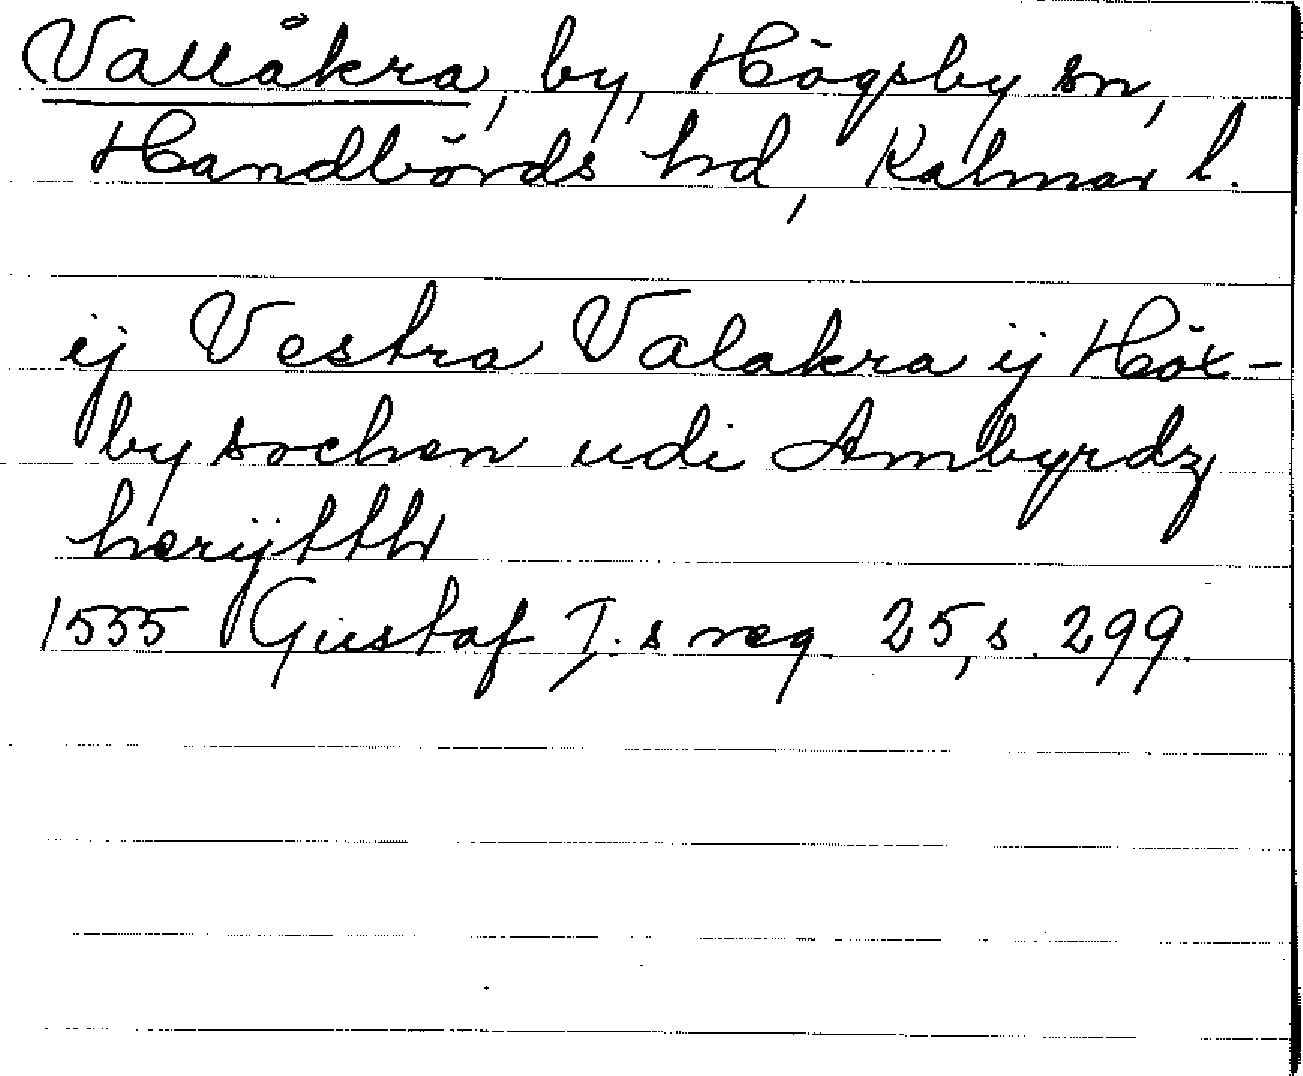 Vallåkra, by, Högsby sn,
Handbörds hd, Kalmar l.
ij Vestra Valakra ij Höx-
by sochen udi Ambyrdz
herijtth
1555 Gustaf I:s reg. 25, s. 299.